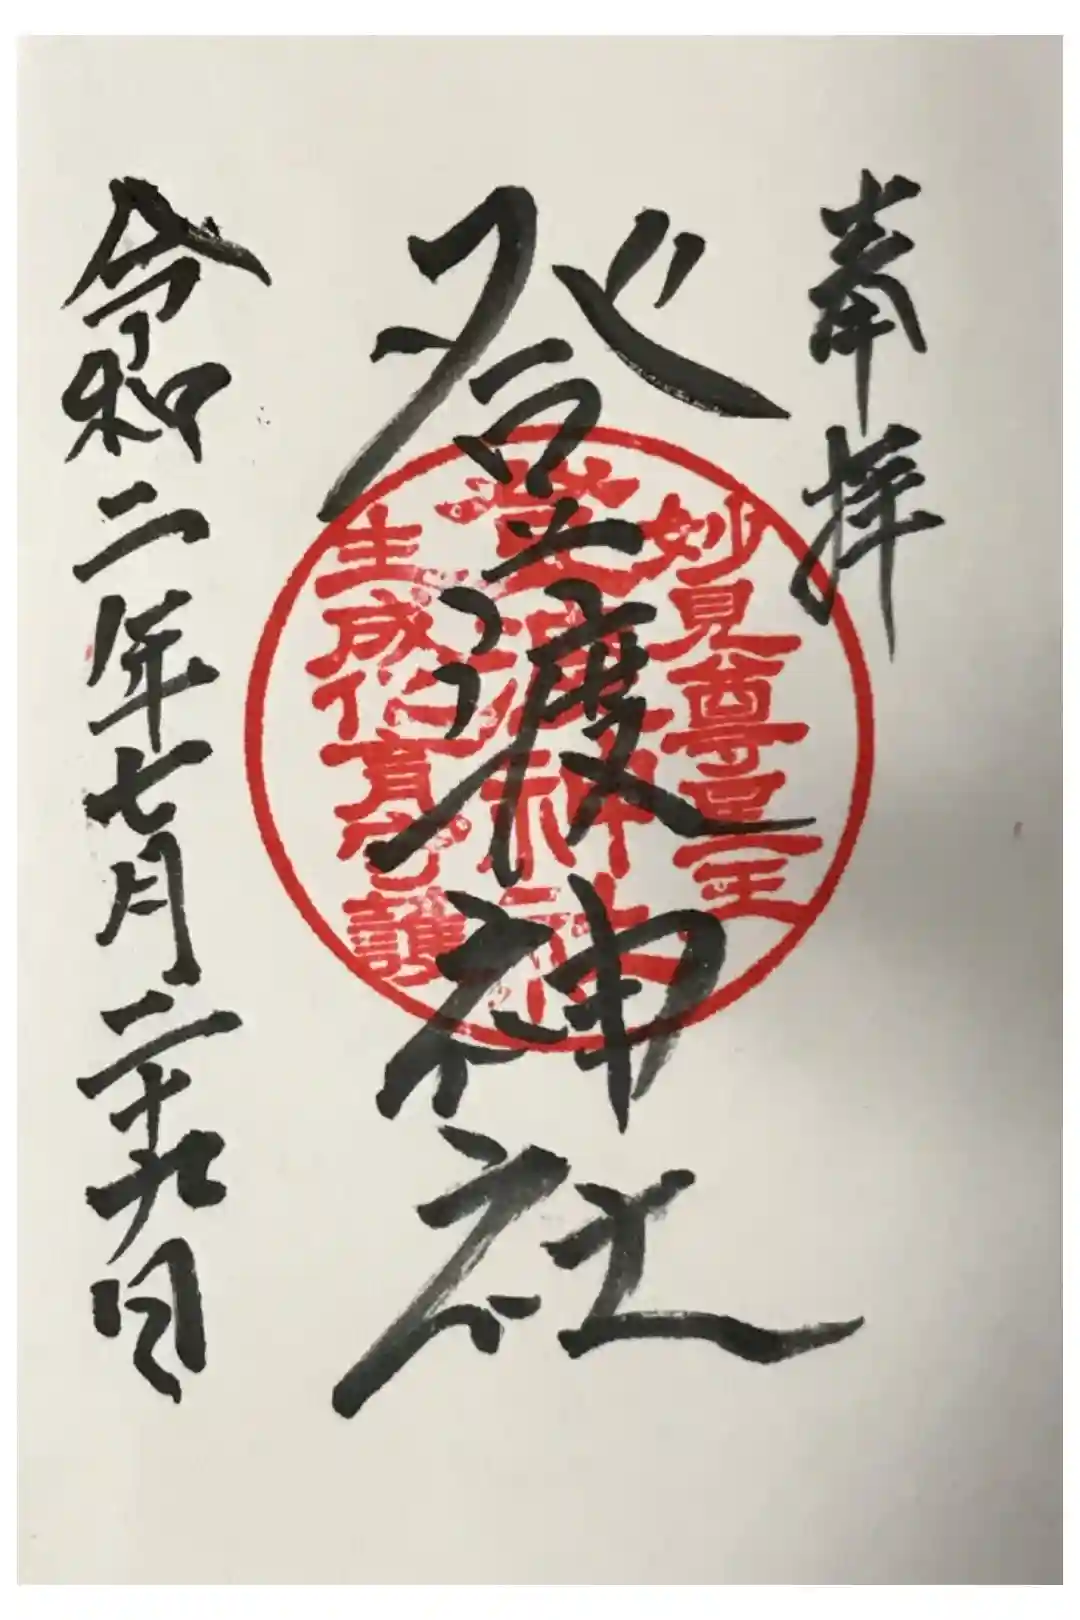 奉拝
登渡神社
令和二年七月二十九日
妙見尊星王
登渡神社
生成化育守護